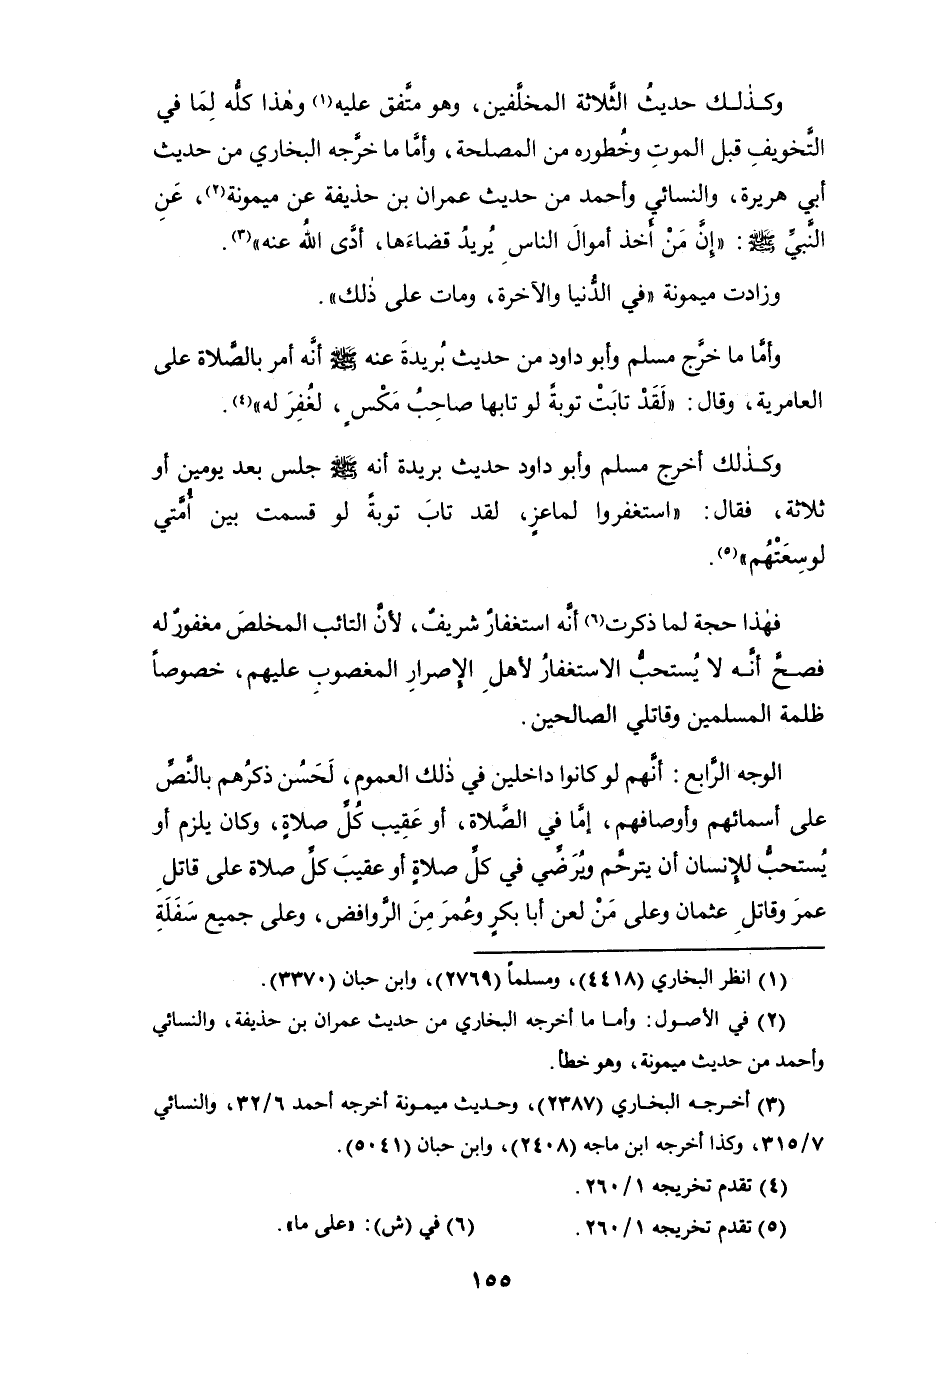 وكذٰلـك حديثُ الثَّلاثة المخلَّفين، وهو متَّفق عليه(١) وهٰذا كلُّه لِمَا في
التَّخويفِ قبل الموتِ وخُطوره من المصلحة، وأمَّا ما خرَّجه البخاري من حديث
أبي هريرة، والنسائي وأحمد من حديث عمران بن حذيفة عن ميمونة(٢)، عَنِ
النَّبيِّ ﷺ: «إِنَّ مَنْ أَخذ أموالَ الناسِ يُريدُ قضاءَها، أدَّى اللهُ عنه»(٣).
وزادت ميمونة «في الدُّنيا والآخرة، ومات على ذٰلك».
وأمَّا ما خرَّج مسلم وأبو داود من حديث بُريدةَ عنه ﷺ أنَّه أمر بالصَّلاة على
العامرية، وقال: «لَقَدْ تابَتْ توبةً لو تابها صاحِبُ مَكْسٍ، لغُفِرَ له»(٤).
وكـذٰلك أخرج مسلم وأبو داود حديث بريدة أنه ﷺ جلس بعد يومين أو
ثلاثة، فقال: «استغفروا لماعزٍ، لقد تابَ توبةً لو قسمت بين أُمَّتي
لوسِعَتْهُم»(٥).
فهٰذا حجة لما ذكرت(٦) أنَّه استغفارٌ شريفٌ، لأنَّ التائب المخلصَ مغفورٌ له
فصـحَّ أنَّـه لا يُستحبُّ الاستغفارُ لأهلِ الإصرارِ المغصوبِ عليهم، خصوصاً
ظلمة المسلمين وقاتلي الصالحين.
الوجه الرَّابع: أنَّهم لو كانوا داخلين في ذٰلك العموم، لَحَسُن ذكرُهم بالنَّصِّ
على أسمائهم وأوصافهم، إمَّا في الصَّلاة، أو عَقِيب كُلِّ صلاةٍ، وكان يلزم أو
يُستحبُّ للإنسان أن يترحَّم ويُرَضِّي في كلِّ صلاةٍ أو عقيبَ كلِّ صلاة على قاتلِ
عمرَ وقاتلِ عثمان وعلى مَنْ لعن أبا بكرٍ وعُمرَ مِنَ الرَّوافض، وعلى جميع سَفَلَةِ
(١) انظر البخاري (٤٤١٨)، ومسلماً (٢٧٦٩)، وابن حبان (٣٣٧٠).
(٢) في الأصـول: وأمـا ما أخرجه البخاري من حديث عمران بن حذيفة، والنسائي
وأحمد من حديث ميمونة، وهو خطأ.
(٣) أخـرجـه البخـاري (٢٣٨٧)، وحـديث ميمـونة أخرجه أحمد ٣٢/٦، والنسائي
٣١٥/٧، وكذا أخرجه ابن ماجه (٢٤٠٨)، وابن حبان (٥٠٤١).
(٤) تقدم تخريجه ٢٦٠/١.
(٥) تقدم تخريجه ٢٦٠/١. (٦) في (ش): «على ما».
١٥٥